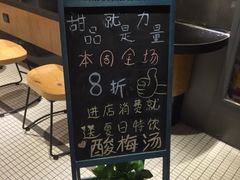 甜品就是力量
本周全场
8折
进店消费就
送夏日特饮
酸梅汤